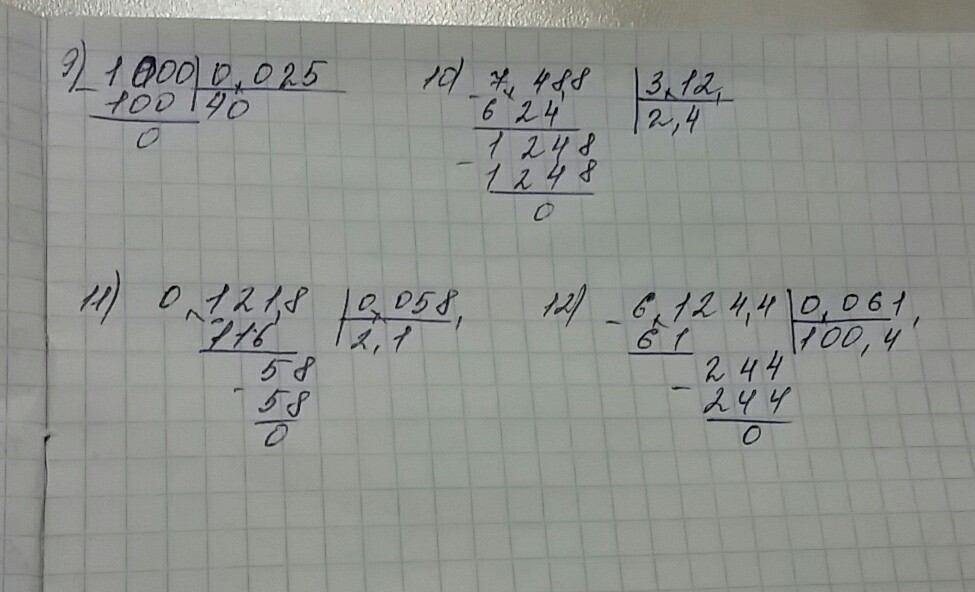 9) 1000 0,025
- 100 40
0
10) 7,488 3,12,
- 6 24 2,4
1 248
- 1 248
0
11) 0,121,8 0,058,
116 2,1
58
- 58
0
12) - 6,124,4 0,061,
61 100,4
- 244
244
0